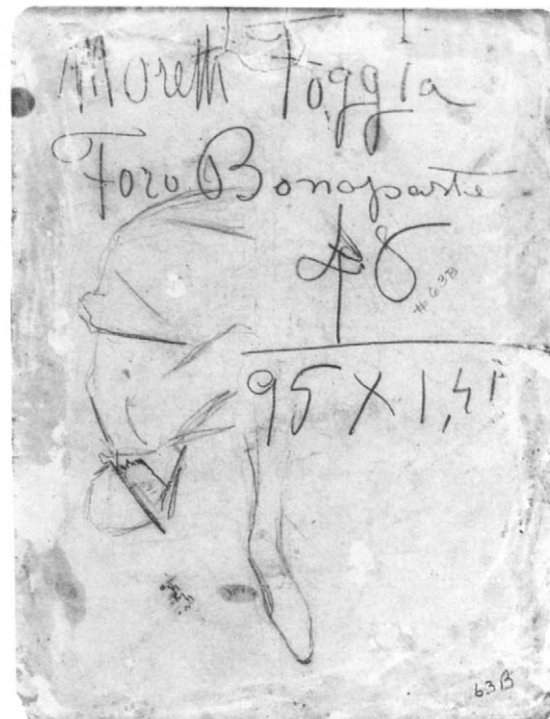 Moretti Foggia
Foro Bonaparte
48
# 63B
95 X 1,41
63B